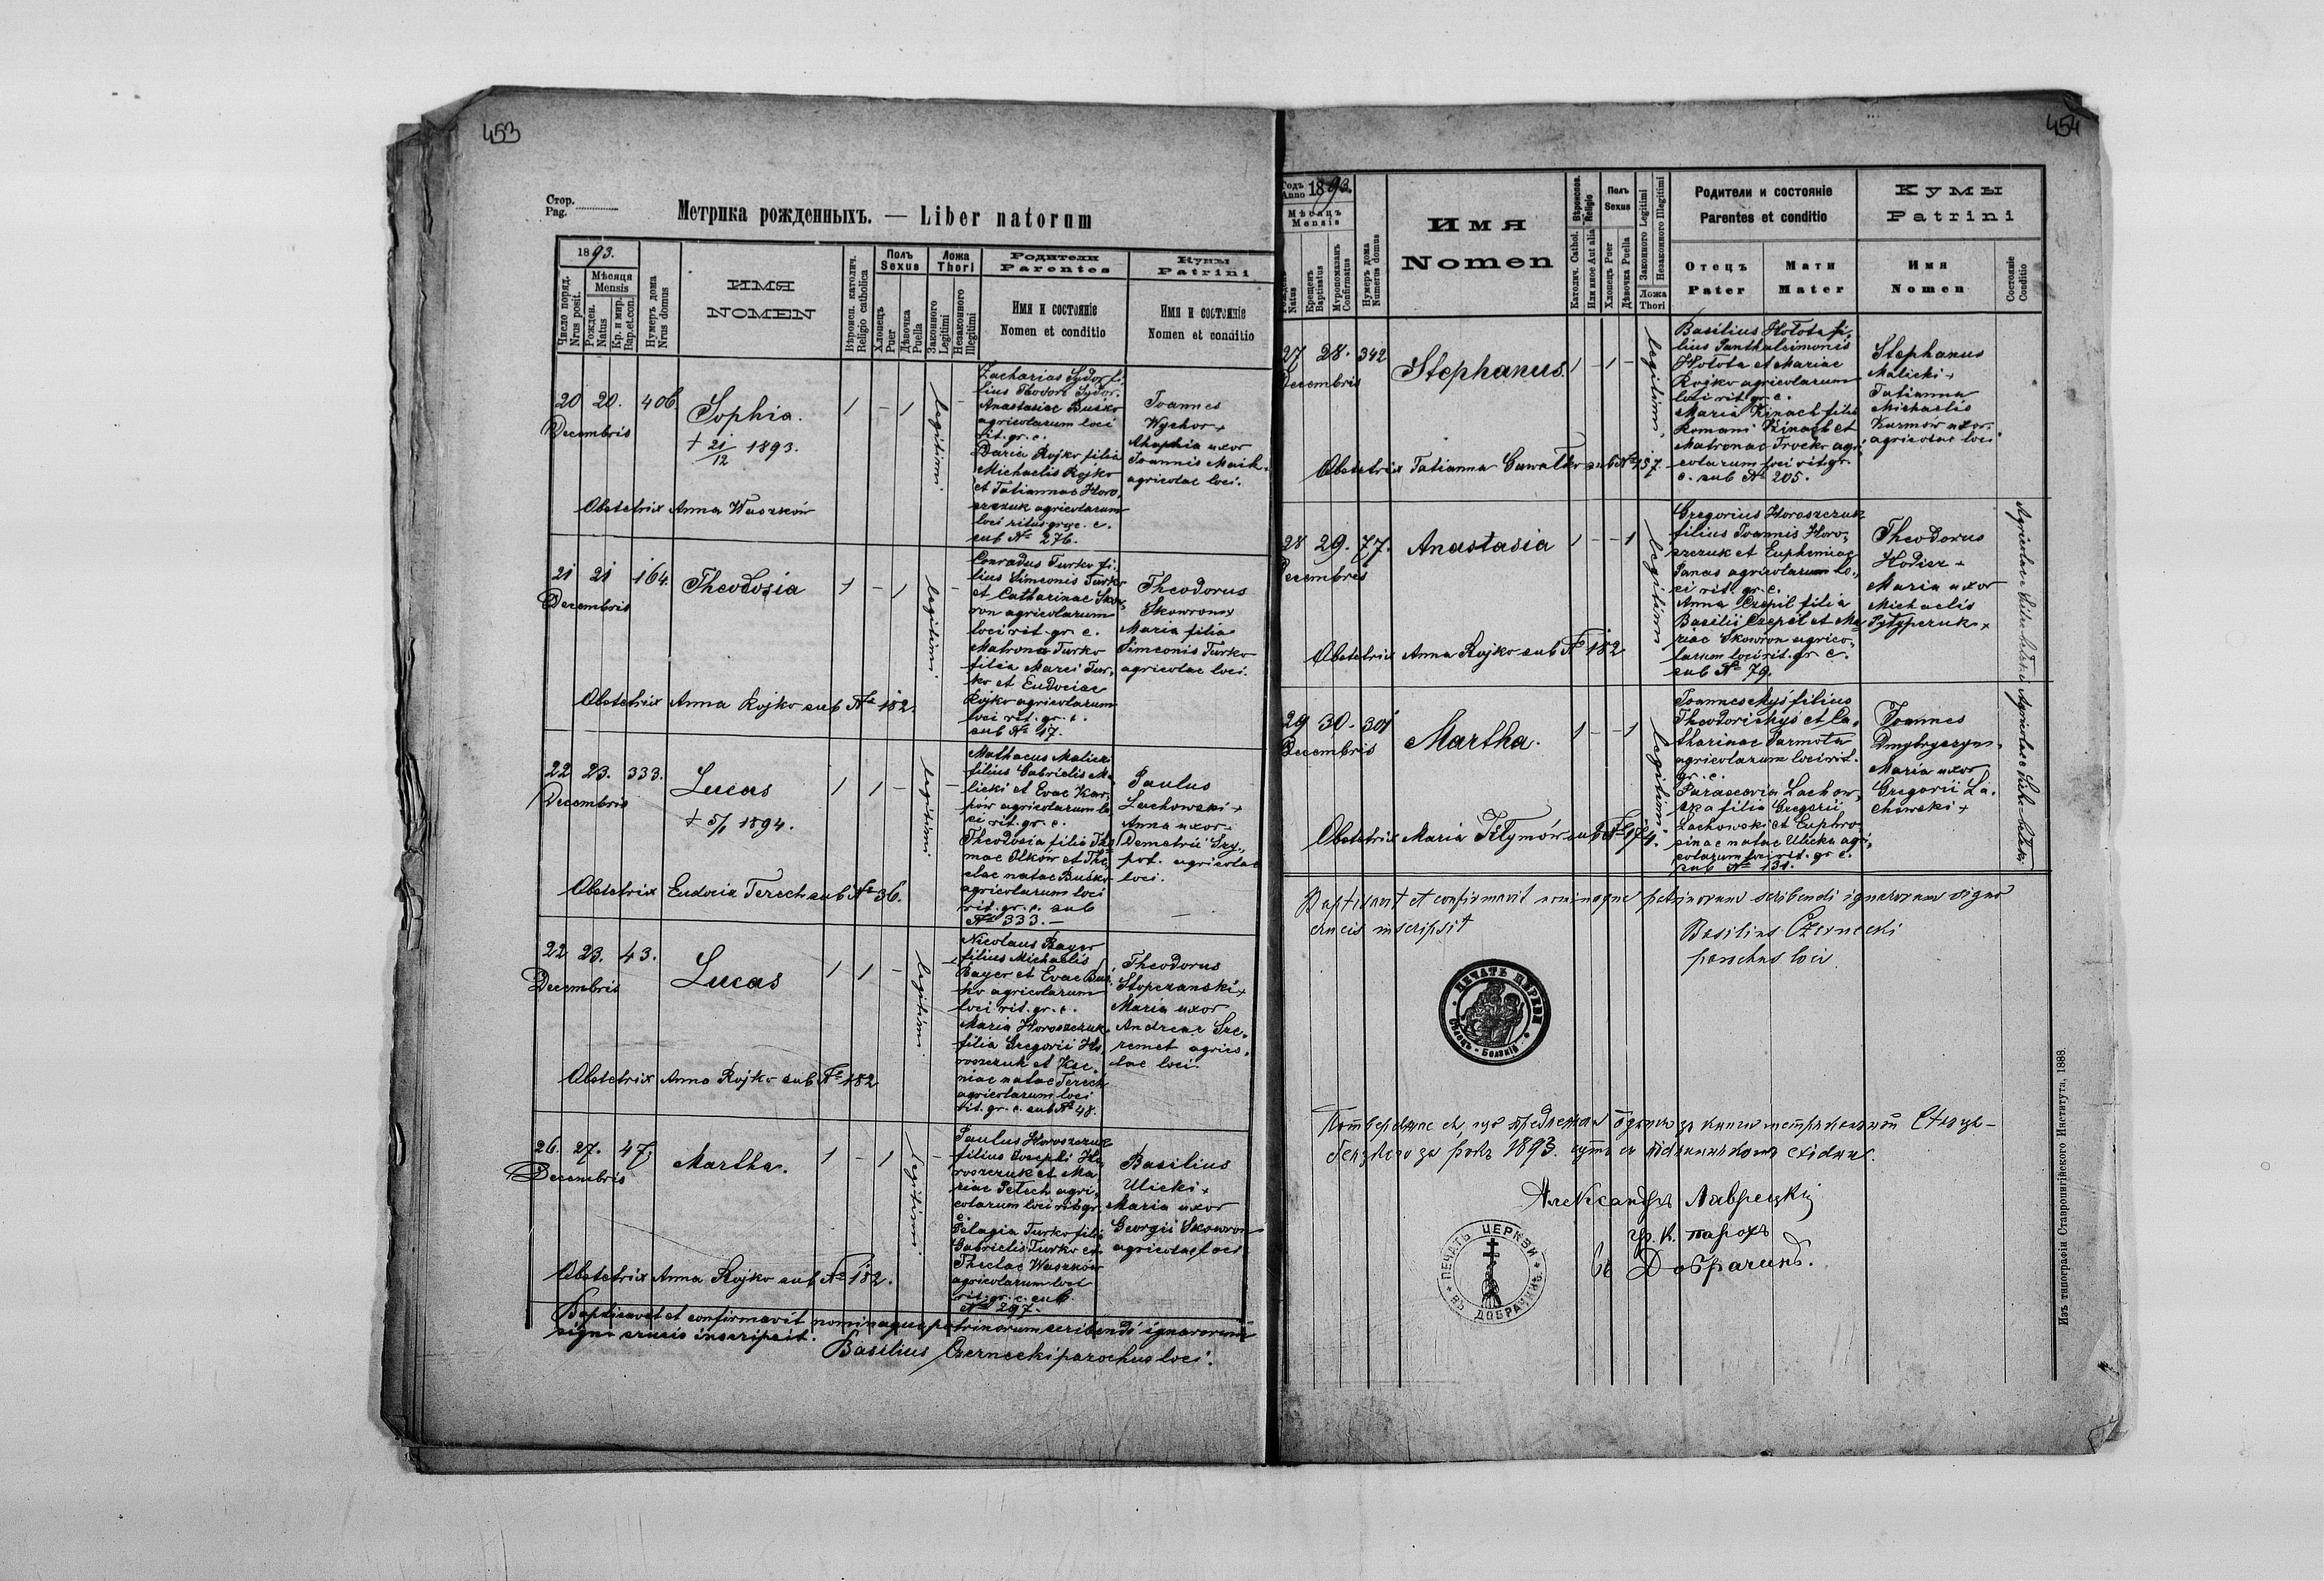 453
Стор.
Pag.
Метрика рожденныхъ. — Liber natorum
1893.
Число поряд.
Nrus posit.
Мѣсяця
Mensis
Рожден.
Natus
Кр. и мир.
Bap. et con.
Нумеръ дома
Nrus domus
ИМЯ
NOMEN
Вѣроисп. католич.
Religio catholica
Полъ
Sexus
Хлопецъ
Puer
Дѣвочка
Puella
Ложа
Thori
Законного
Legitimi
Незаконного
Illegitimi
Родители
Parentes
Имя и состояніе
Nomen et conditio
Кумы
Patrini
Имя и состояніе
Nomen et conditio
20 20. 406.
Decembris
Sophia.
+ 21/12 1893.
1 - 1
legitimi
Zacharias Sydor fi-
lius Theodori Sydor
Anastasiae Busko
agricolarum loci
rit. gr. c.
Daria Rojko filia
Michaelis Rojko
et Tatiannae Horo-
szczuk agricolarum
loci ritus graec. c.
sub No 276.
Joannes
Wychor +
Ahaphia uxor
Joannis Maik
agricolae loci.
Obstetrix Anna Waszków
21 21 164.
Decembris
Theodozia
1 - 1
legitimi
Conradus Turko fi-
lius Simeonis Turko
et Catharinae Skow-
ron agricolarum
loci rit. gr. c.
Matrona Turko
filia Marci Tur-
ko et Eudociae
Rojko agricolarum
loci rit. gr. c.
sub No 17.
Theodorus
Skowron +
Maria filia
Simeonis Turko
agricolae loci.
Obstetrix Anna Rojko sub No 182.
22 23. 333.
Decembris
Lucas
+ 5/1 1894.
1 1 -
legitimi
Mathaeus Malicki
filius Gabrielis Ma-
licki et Evae Kar-
pów agricolarum lo-
ci rit. gr. c.
Theodosia filia Tho-
mae Olków et The-
clae natae Busko
agricolarum loci
rit. gr. c. sub
No 333. —
Paulus
Lachowski +
Anna uxor
Demetrii
agricolae
loci.
Obstetrix Eudocia Terech sub No 36.
22 23. 43.
Decembris
Lucas
1 1 -
legitimi
Nicolaus Bayer
filius Michaelis
Bayer et Evae Bus-
ko agricolarum
loci rit. gr. c.
Maria Horoszczuk
filia Gregorii Ho-
roszczuk et Xe-
niae natae Terech
agricolarum loci
rit. gr. c. sub No 48.
Theodorus
Stopczanski +
Maria uxor
Andreae Sze-
remet agrico-
lae loci.
Obstetrix Anna Rojko sub No 182
26. 27. 47.
Decembris
Martha.
1 - 1
legitimi
Paulus Horoszczuk
filius Josephi Ho-
roszczuk et Ma-
riae Petech agri-
colarum loci rit. gr.
c.
Pelagia Turko filia
Gabrielis Turko et
Theclae Waszków
agricolarum loci
rit. gr. c. sub
No 297.
Basilius
Ulicki +
Maria uxor
Georgii Skowron
agricolae loci
Obstetrix Anna Rojko sub No 182.
Baptisavit et confirmavit nominaque patrinorum scribendi ignarorum
signo crucis inscripsit.
Basilius Czernecki parochus loci.
454
Годъ
Anno 1893.
Мѣсяцъ
Mensis
Рожденъ
Natus
Крещенъ
Baptisatus
Мѵропомазанъ
Confirmatus
Нумеръ дома
Numerus domus
Имя
Nomen
Вѣроиспов.
Religio
Католич. Cathol.
Или иное Aut alia
Полъ
Sexus
Хлопецъ Puer
Дѣвочка Puella
Законного Legitimi
Незаконного Illegitimi
Ложа
Thori
Родители и состояніе
Parentes et conditio
Отецъ
Pater
Мати
Mater
Кумы
Patrini
Имя
Nomen
Состояніе
Conditio
27 28. 342
Decembris
Stephanus.
1 - 1 -
legitimi
Basilius Hołota fi-
lius Panthaleimonis
Hołota et Mariae
Rojko agricolarum
loci rit. gr. c.
Maria Kinach filia
Romani Kinach et
Matronae Trocko agri-
colarum loci rit. gr.
c. sub No 205.
Stephanus
Malicki +
Tatianna
Michaelis
Kurmów uxor
agricolae loci
Obstetrix Tatianna Gawałko sub No 157.
28 29. 77.
Decembris
Anastasia
1 - - 1
legitimi
Gregorius Horoszczuk
filius Joannis Horo-
szczuk et Euphemiae
Panas agricolarum lo-
ci rit. gr. c.
Anna Czepil filia
Basilii Czepil et Ma-
riae Skowron agrico-
larum loci rit. gr. c.
sub No 79.
Theodorus
Hodier +
Maria uxor
Michaelis
Pyłypczuk +
Obstetrix Anna Rojko sub No 182
29 30. 301
Decembris
Martha.
1 - - 1
legitimi
Joannes Mys filius
Theodori Mys et Ca-
tharinae Parmota
agricolarum loci rit.
gr. c.
Parascevia Lachow-
ska filia Gregorii
Lachowski et Euphro-
sinae natae Ulicka agri-
colarum loci rit. gr. c.
sub No 131.
Joannes
Dmytryszyn
Maria uxor
Gregorii La-
chowski +
Obstetrix Maria Filymów sub No 174.
Baptisavit et confirmavit nominaque patrinorum scribendi ignarorum signo
crucis inscripsit
Basilius Czernecki
parochus loci
ПЕЧАТЬ ЦЕРКВИ
1893.
Александръ Лаврецкій
гр. к. парохъ
Въ Добрачинѣ.
ПЕЧАТЬ ЦЕРКВИ
ВЪ ДОБРАЧИНѢ
Изъ типографіи Ставропигійского Института, 1888.